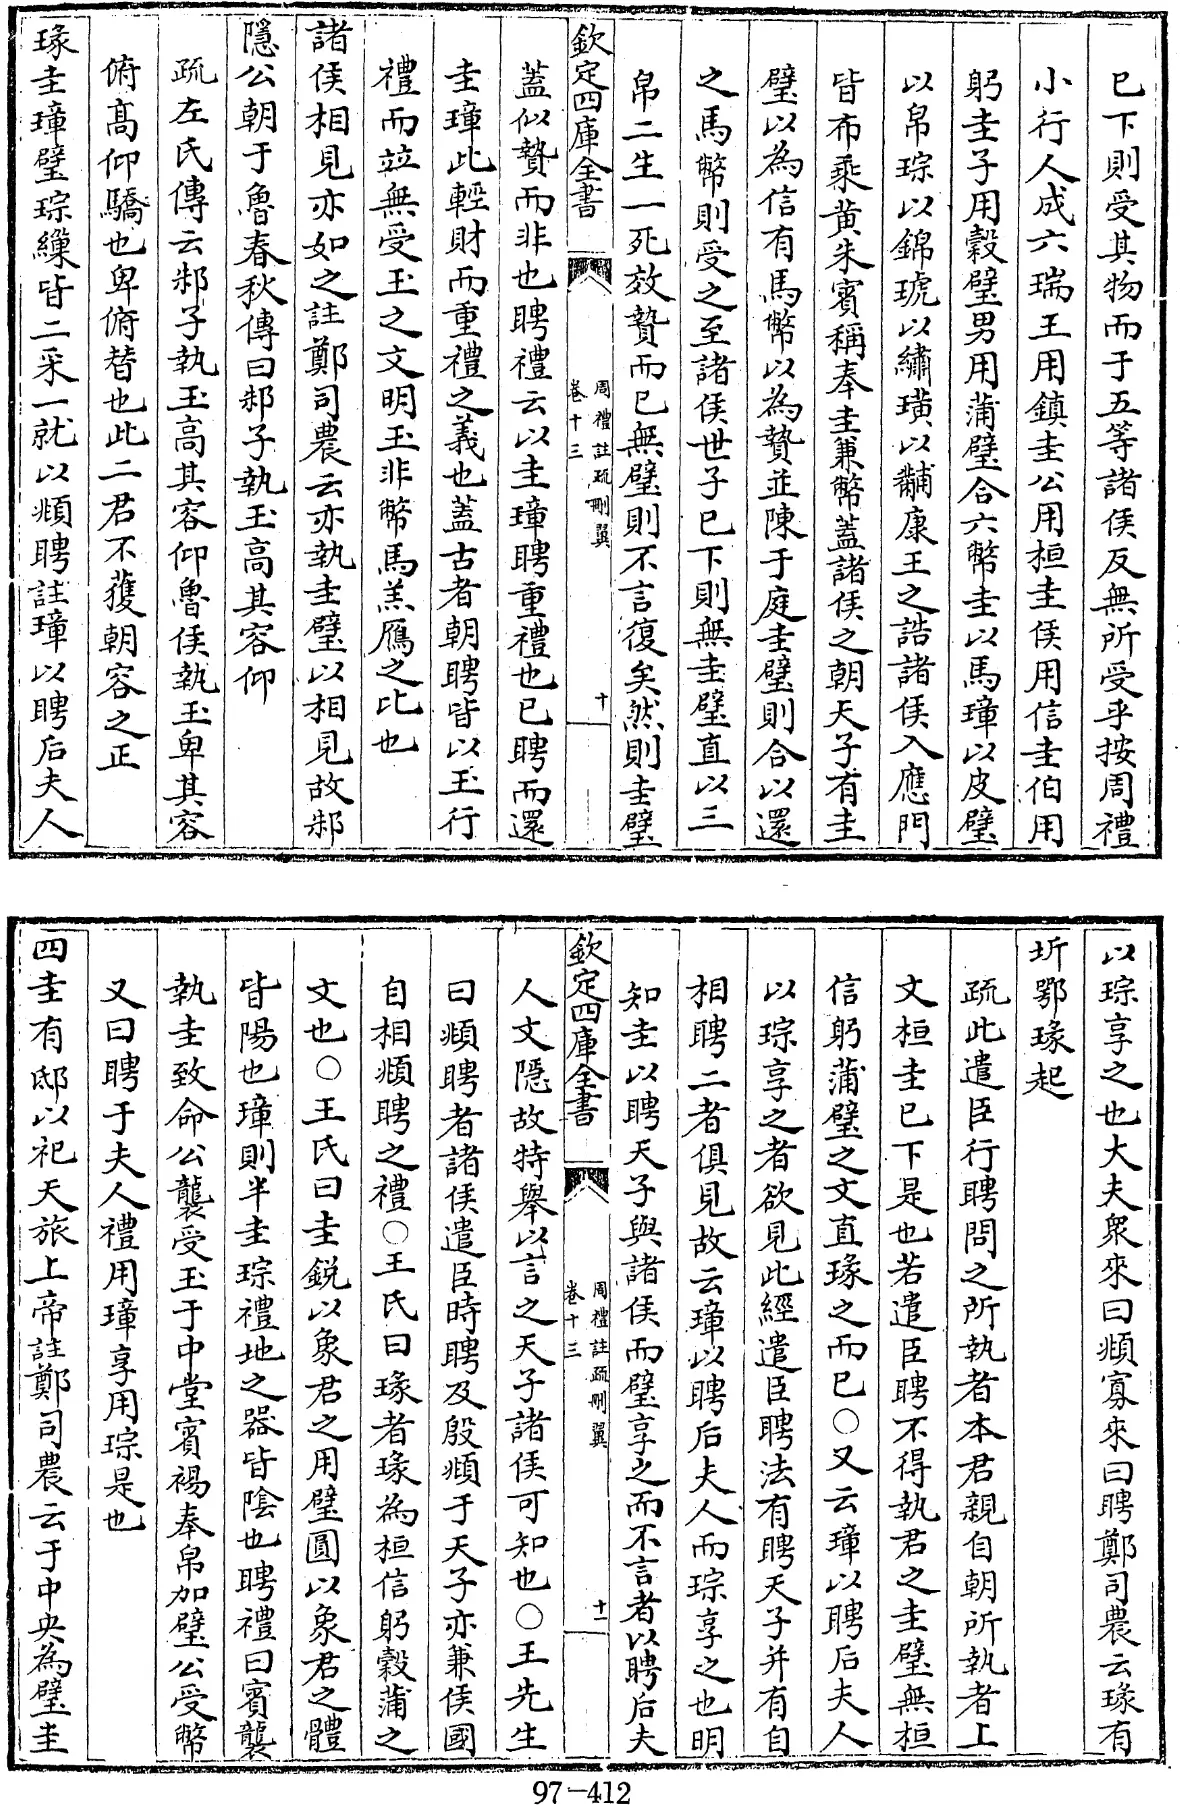 已下則受其物而于五等諸侯反無所受乎按周禮
小行人成六瑞王用鎮圭公用桓圭侯用信圭伯用
躬圭子用穀璧男用蒲璧合六幣圭以馬璋以皮璧
以帛琮以錦琥以繡璜以黼康王之誥諸侯入應門
皆布乘黃朱賓稱奉圭兼幣蓋諸侯之朝天子有圭
璧以為信有馬幣以為贄並陳于庭圭璧則合以還
之馬幣則受之至諸侯世子已下則無圭璧直以三
帛二生一死效贄而已無璧則不言復矣然則圭璧
欽定四庫全書
周禮註疏刪翼
卷十三
十
蓋似贄而非也聘禮云以圭璋聘重禮也已聘而還
圭璋此輕財而重禮之義也蓋古者朝聘皆以玉行
禮而竝無受玉之文明玉非幣馬羔鴈之比也
諸侯相見亦如之註鄭司農云亦執圭璧以相見故邾
隱公朝于魯春秋傳曰邾子執玉高其容仰
疏左氏傳云邾子執玉高其容仰魯侯執玉卑其容
俯高仰驕也卑俯替也此二君不獲朝容之正
瑑圭璋璧琮繅皆二采一就以頫聘註璋以聘后夫人
以琮享之也大夫衆來曰頫寡來曰聘鄭司農云瑑有
圻鄂瑑起
疏此遣臣行聘問之所執者本君親自朝所執者上
文桓圭已下是也若遣臣聘不得執君之圭璧無桓
信躬蒲璧之文直瑑之而已○又云璋以聘后夫人
以琮享之者欲見此經遣臣聘法有聘天子并有自
相聘二者俱見故云璋以聘后夫人而琮享之也明
知圭以聘天子與諸侯而璧享之而不言者以聘后夫
欽定四庫全書
周禮註疏刪翼
卷十三
十一
人文隱故特舉以言之天子諸侯可知也○王先生
曰頫聘者諸侯遣臣時聘及殷頫于天子亦兼侯國
自相頫聘之禮○王氏曰瑑者瑑為桓信躬穀蒲之
文也○王氏曰圭銳以象君之用璧圓以象君之體
皆陽也璋則半圭琮禮地之器皆陰也聘禮曰賓襲
執圭致命公襲受玉于中堂賓裼奉帛加璧公受幣
又曰聘于夫人禮用璋享用琮是也
四圭有邸以祀天旅上帝註鄭司農云于中央為璧圭
97-412